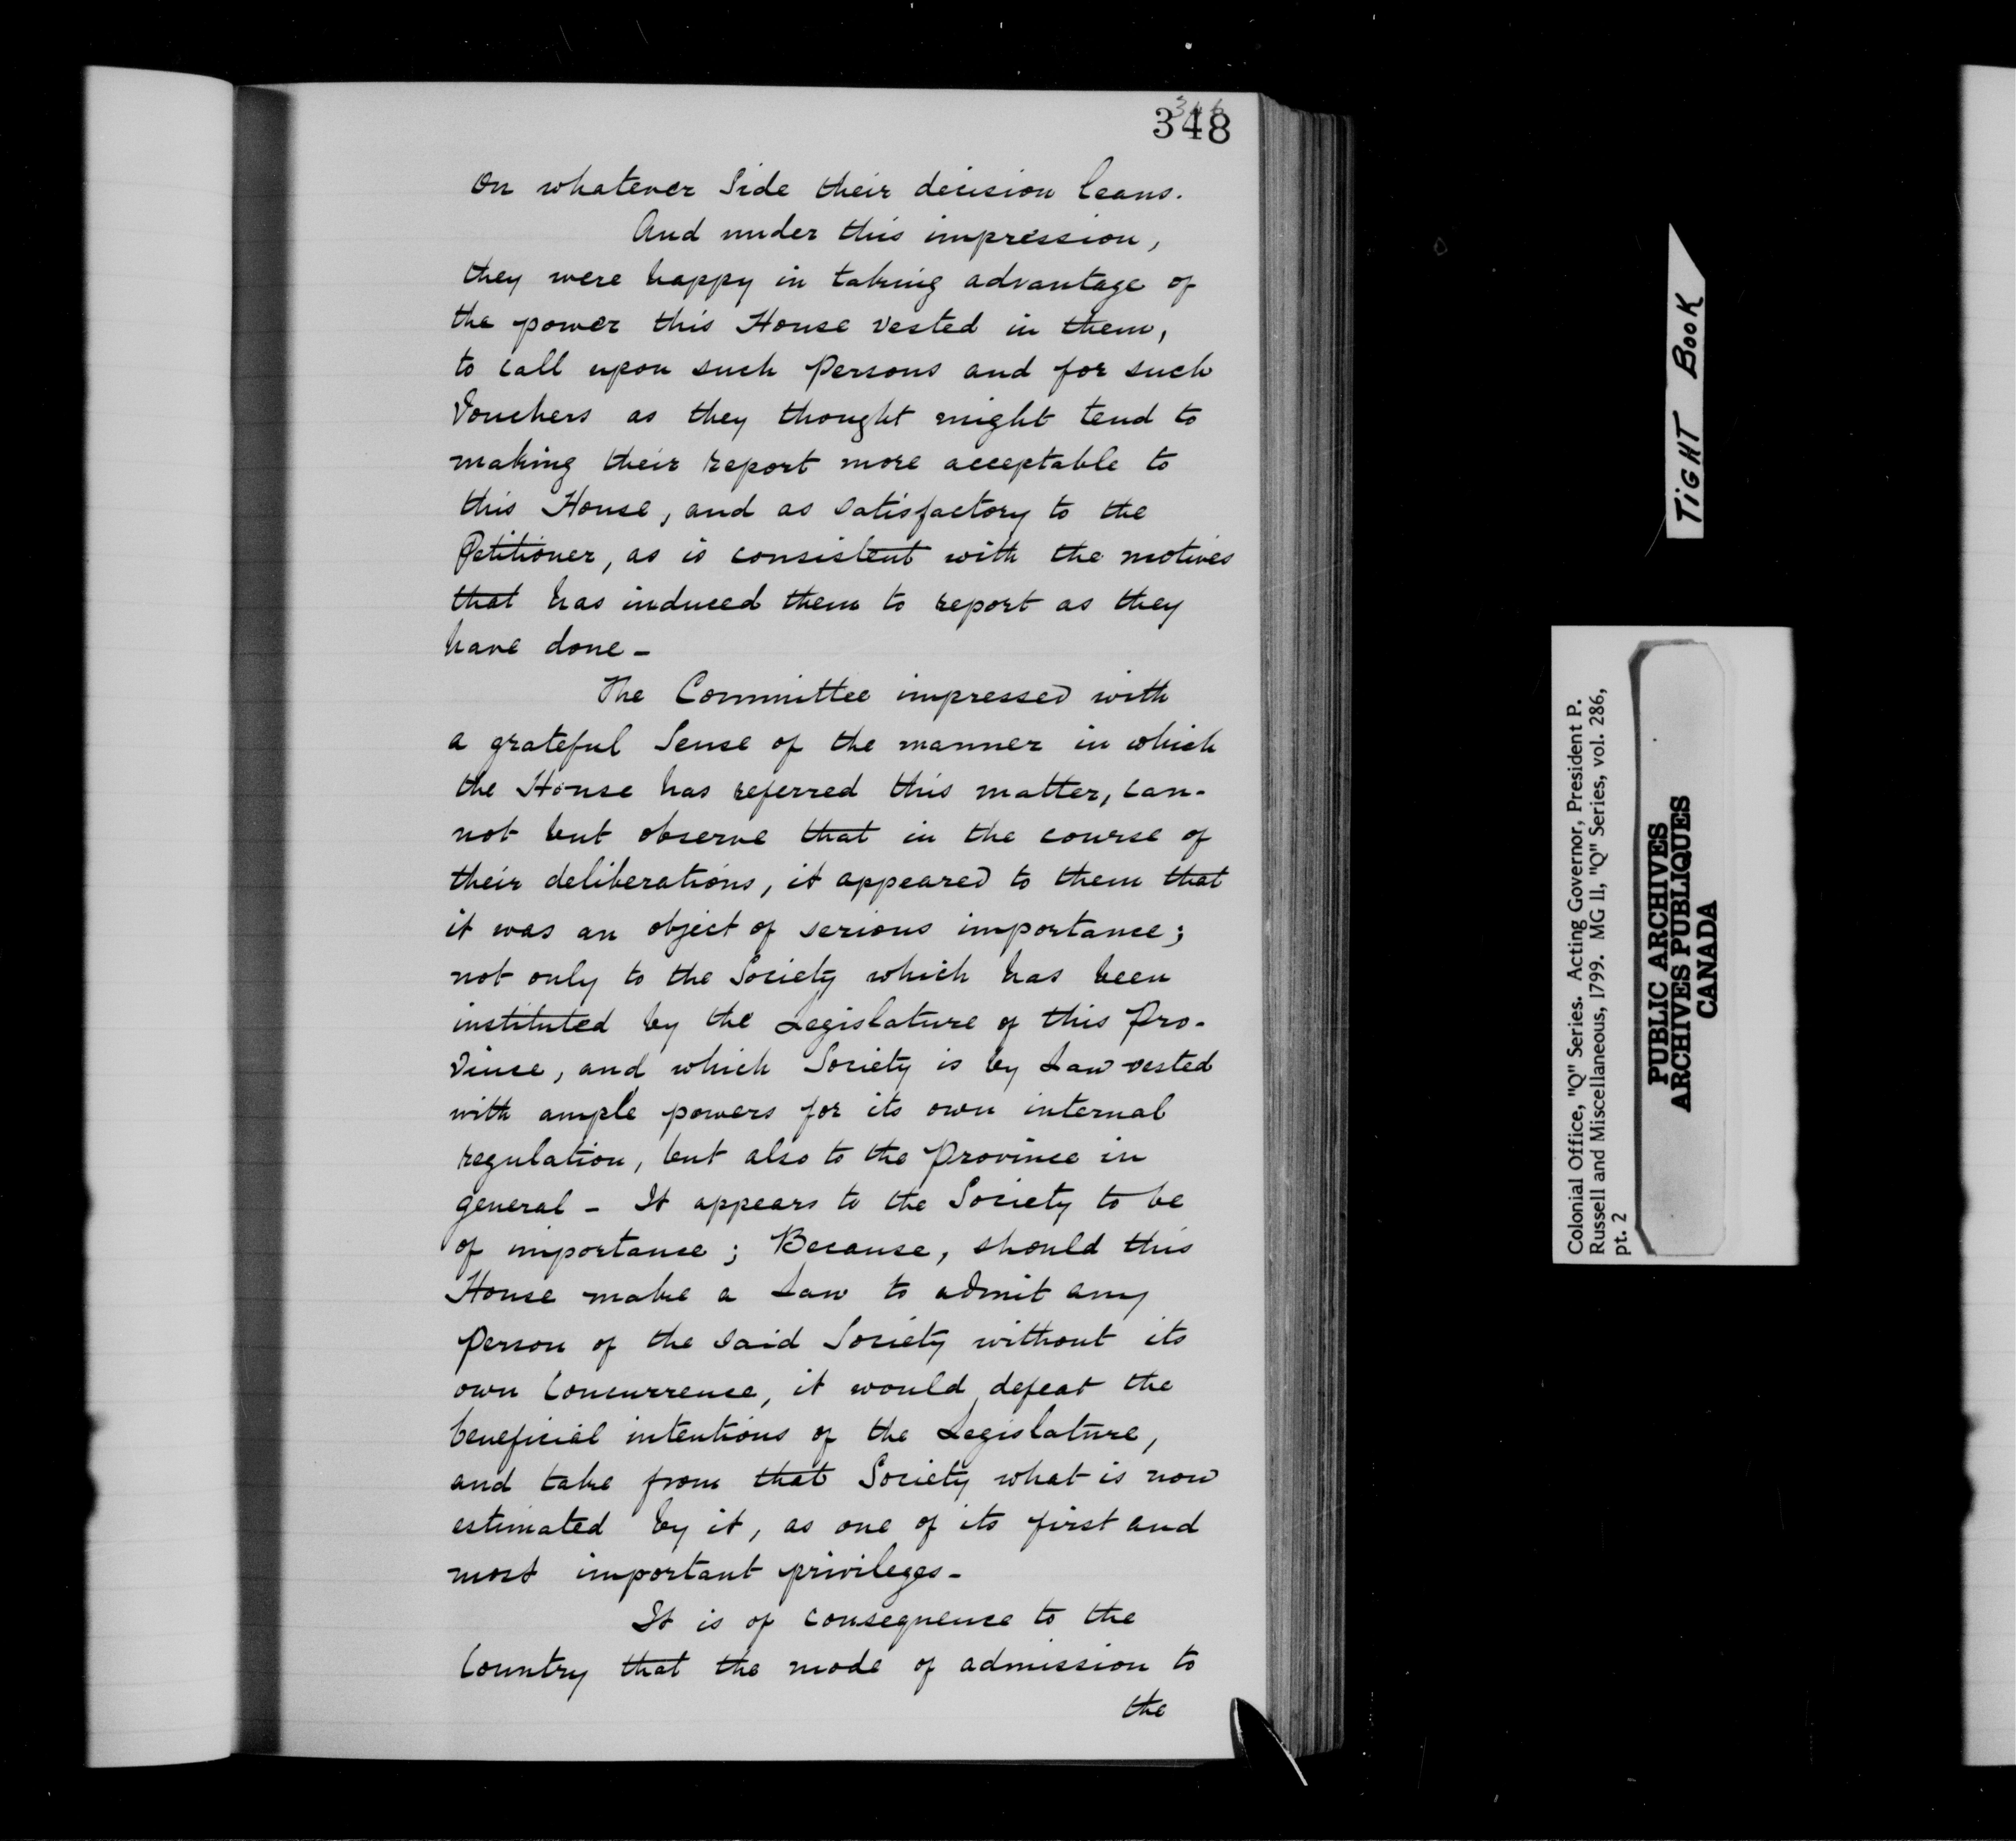 346
348
On whatever Side their decision leans.
And under this impression,
they were happy in taking advantage of
the power this House vested in them,
to call upon such Persons and for such
Vouchers as they thought might tend to
making their report more acceptable to
this House, and as satisfactory to the
Petitioner, as is consistent with the motives
that has induced them to report as they
have done -
The Committee impressed with
a grateful Sense of the manner in which
the House has referred this matter, can-
not but observe that in the course of
their deliberations, it appeared to them that
it was an object of serious importance;
not only to the Society which has been
instituted by the Legislature of this Pro-
vince, and which Society is by Law vested
with ample powers for its own internal
regulation, but also to the Province in
general - It appears to the Society to be
of importance; Because, should this
House make a Law to admit any
Person of the said Society without its
own Concurrence, it would defeat the
beneficial intentions of the Legislature,
and take from that Society what is now
estimated by it, as one of its first and
most important privileges -
It is of consequence to the
Country that the mode of admission to
the
TIGHT BOOK
Colonial Office, "Q" Series. Acting Governor, President P.
Russell and Miscellaneous, 1799. MG 11, "Q" Series, vol. 286,
pt. 2
PUBLIC ARCHIVES
ARCHIVES PUBLIQUES
CANADA